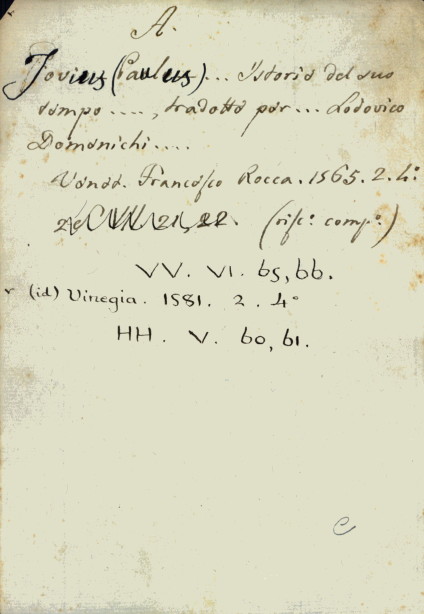 A.
Jovius (Paulus)... Istorie del suo
tempo ...., tradotto per ... Lodovico
Domenichi....
Vened. Francesco Rocca. 1565. 2. 4.°
21, 22. (risc.° comp.°)
VV. VI. 65, 66.
(id) Vinegia. 1581. 2. 4°
HH. V. 60, 61.
C